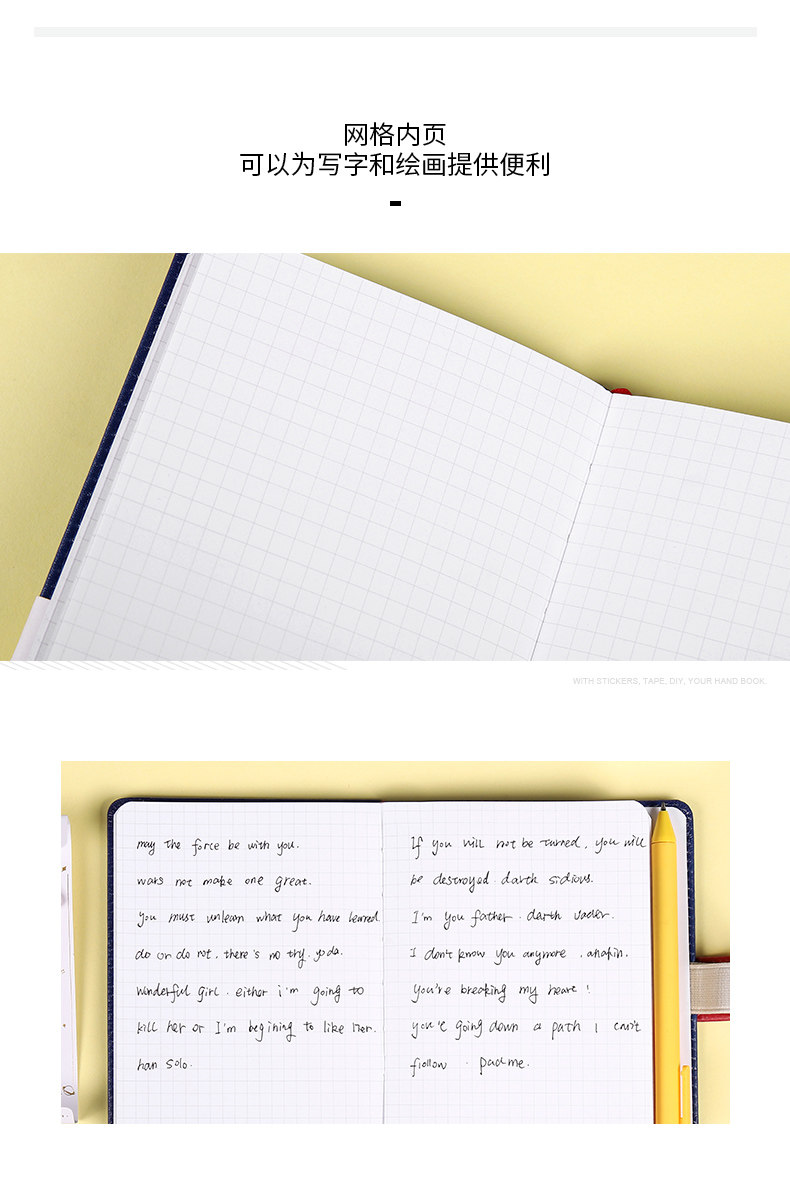 网格内页
可以为写字和绘画提供便利
WITH STICKERS, TAPE, DIY, YOUR HAND BOOK.
may the force be with you.
wars not make one great.
you must unlearn what you have learned.
do or do not, there's no try. yoda.
wonderful girl. either i'm going to
kill her or I'm begining to like her.
han solo.
If you will not be turned, you will
be destroyed. darth sidious.
I'm you father. darth vader.
I don't know you anymore, anakin.
you're breaking my heart!
you're going down a path I can't
follow. padme.